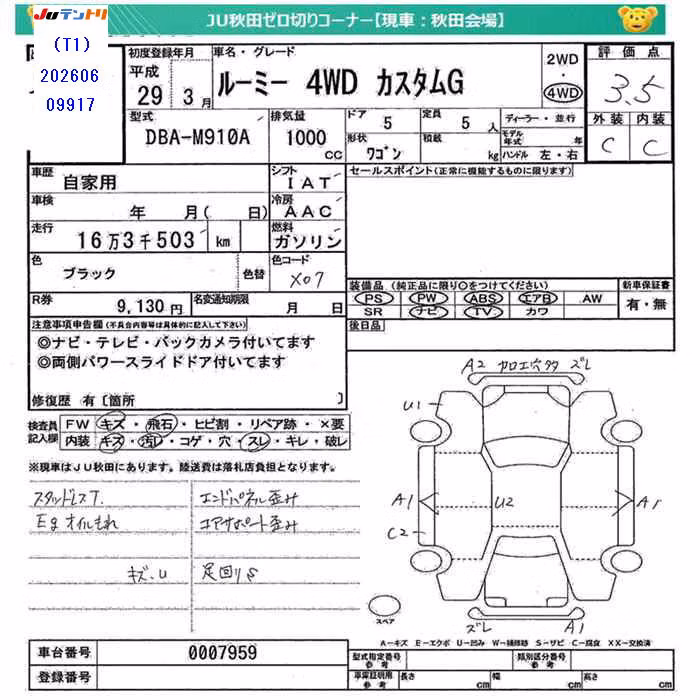 JUテントリ
JU秋田ゼロ切りコーナー【現車：秋田会場】
(T1)
202606
09917
初度登録年月
平成
29年 3月
車名・グレード
ルーミー 4WD カスタムG
2WD
・
4WD
評価点
3.5
外装 内装
C C
型式
DBA-M910A
排気量
1000
cc
ドア
5
定員
5 人
形状
ワゴン
積載
kg
ディーラー・並行
モデル年式 年
ハンドル 左・右
車歴
自家用
シフト
IAT
車検
年 月( 日)
冷房
AAC
走行
16万3千503 km
燃料
ガソリン
色
ブラック
色替
色コード
X07
R券
9,130円
名変通知期限
月 日
セールスポイント(正常に機能するものに限ります)
装備品 (純正品に限り○をつけてください)
PS PW ABS エアB AW
SR ナビ TV カワ
新車保証書
有・無
後日品
注意事項申告欄(不具合内容等は具体的に記入して下さい)
◎ナビ・テレビ・バックカメラ付いてます
◎両側パワースライドドア付いてます
修復歴 有〔箇所 〕
検査員記入欄
FW キズ・飛石・ヒビ割・リペア跡・×要
内装 キズ・汚レ・コゲ・穴・スレ・キレ・破レ
※現車はJU秋田にあります。陸送費は落札店負担となります。
スタッドレスT.
Egオイルもれ
キズ.U
エンドパネル歪み
コアサポート歪み
足回りS
A2 カロエ穴多 ズレ
U1
A1
U2
A1
C2
ズレ A1
スペア
A－キズ E－エクボ U－凹み W－補修跡 S－サビ C－腐食 XX－交換済
車台番号
0007959
登録番号
型式指定番号
参考
類別区分番号
参考
車庫証明用
参考
長さ cm
幅 cm
高さ cm